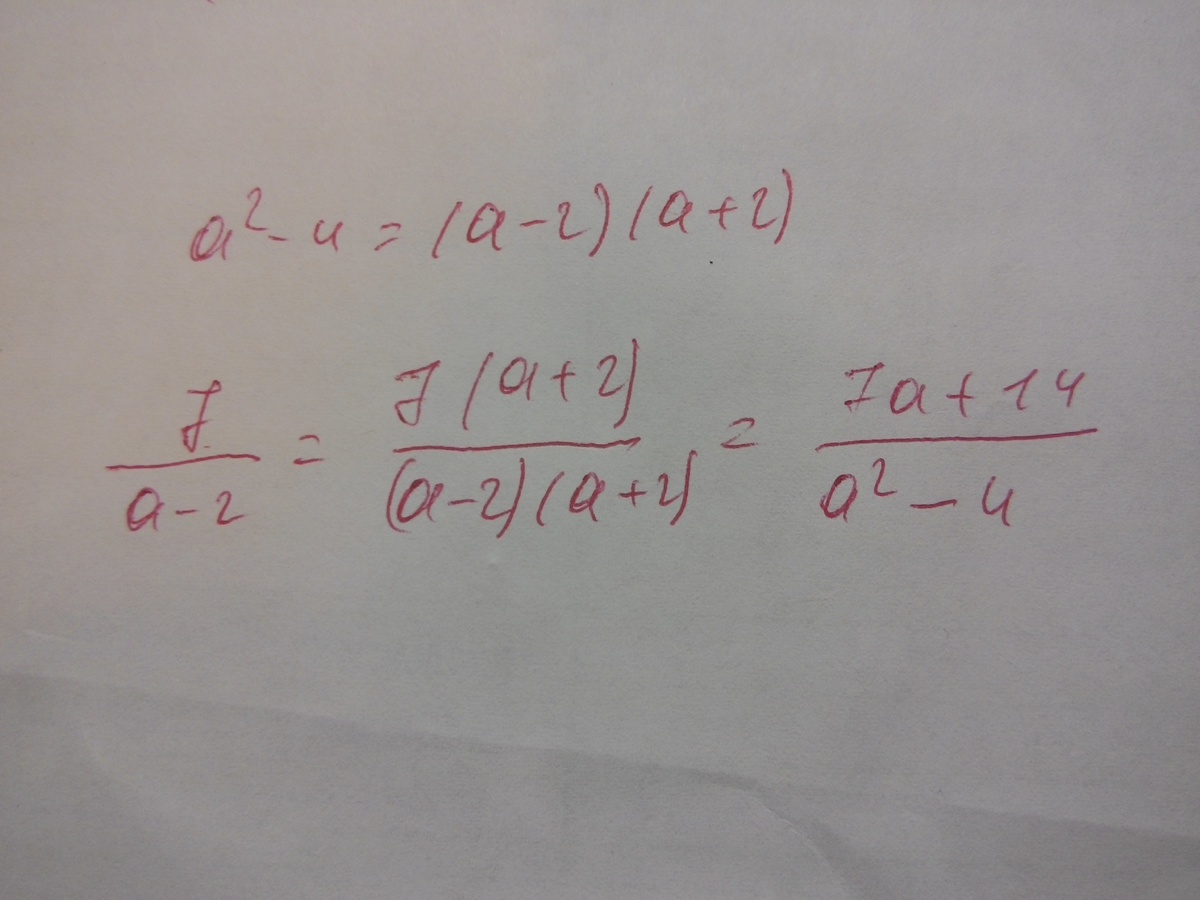 a² - 4 = (a-2)(a+2)
7/(a-2) = 7(a+2)/((a-2)(a+2)) = (7a+14)/(a²-4)